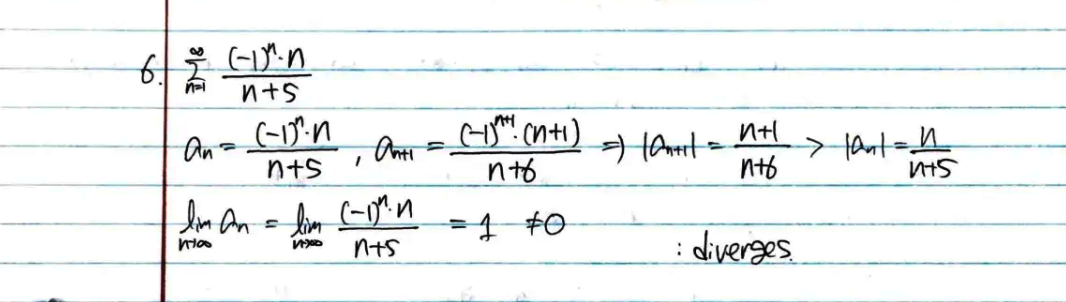 6. $\sum_{n=1}^{\infty} \frac{(-1)^n \cdot n}{n+5}$
$a_n = \frac{(-1)^n \cdot n}{n+5}$, $a_{n+1} = \frac{(-1)^{n+1} \cdot (n+1)}{n+6}$ ⇒ $|a_{n+1}| = \frac{n+1}{n+6} > |a_n| = \frac{n}{n+5}$
$\lim_{n \to \infty} a_n = \lim_{n \to \infty} \frac{(-1)^n \cdot n}{n+5} = 1 \neq 0$
: diverges.